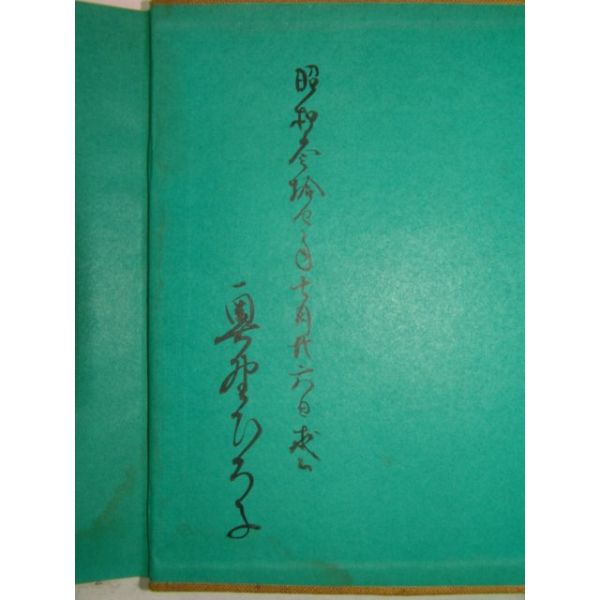 昭和参拾年月廿六日求ム
奥野ひろ子